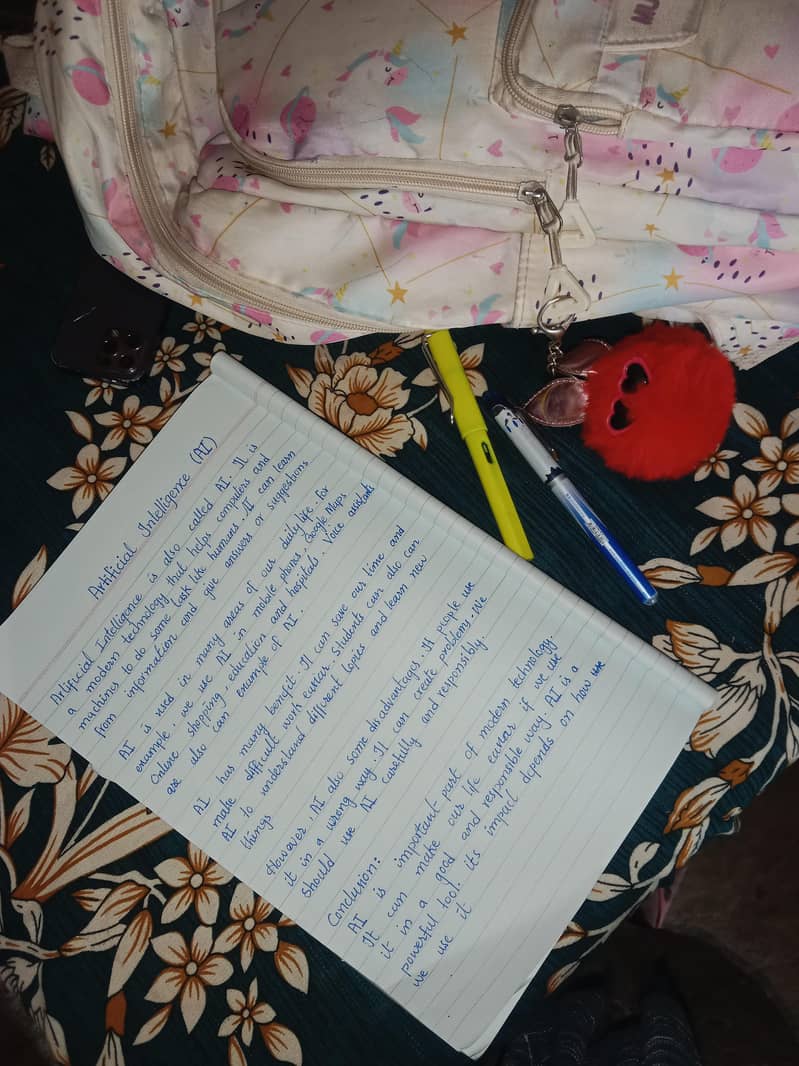 MU
Artificial Intelligence (AI)
Artificial Intelligence is also called AI. It is
a modern technology that helps computers and
machines to do some task like humans. AI can learn
from information and give answers or suggestions
AI is used in many areas of our daily life. for
example, we use AI in mobile phones, Google Maps
Online shopping, education and hospitals. Voice assistants
are also can example of AI.
AI has many benefit. It can save our time and
make difficult work easier. Students can also can
AI to understand different topics and learn new
things
However, AI also some disadvantages. If people use
it in a wrong way. It can create problems. We
should use AI carefully and responsibly.
Conclusion:
AI is important part of modern technology.
It can make our life easier if we use
it in a good and responsible way. AI is a
powerful tool. its impact depends on how we
we use it